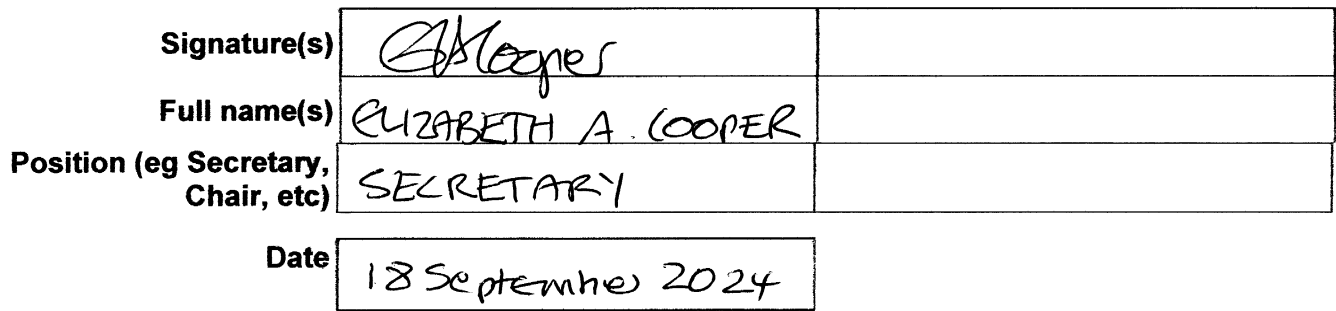 Signature(s) EACooper
Full name(s) ELIZABETH A. COOPER
Position (eg Secretary,
Chair, etc) SECRETARY
Date 18 September 2024